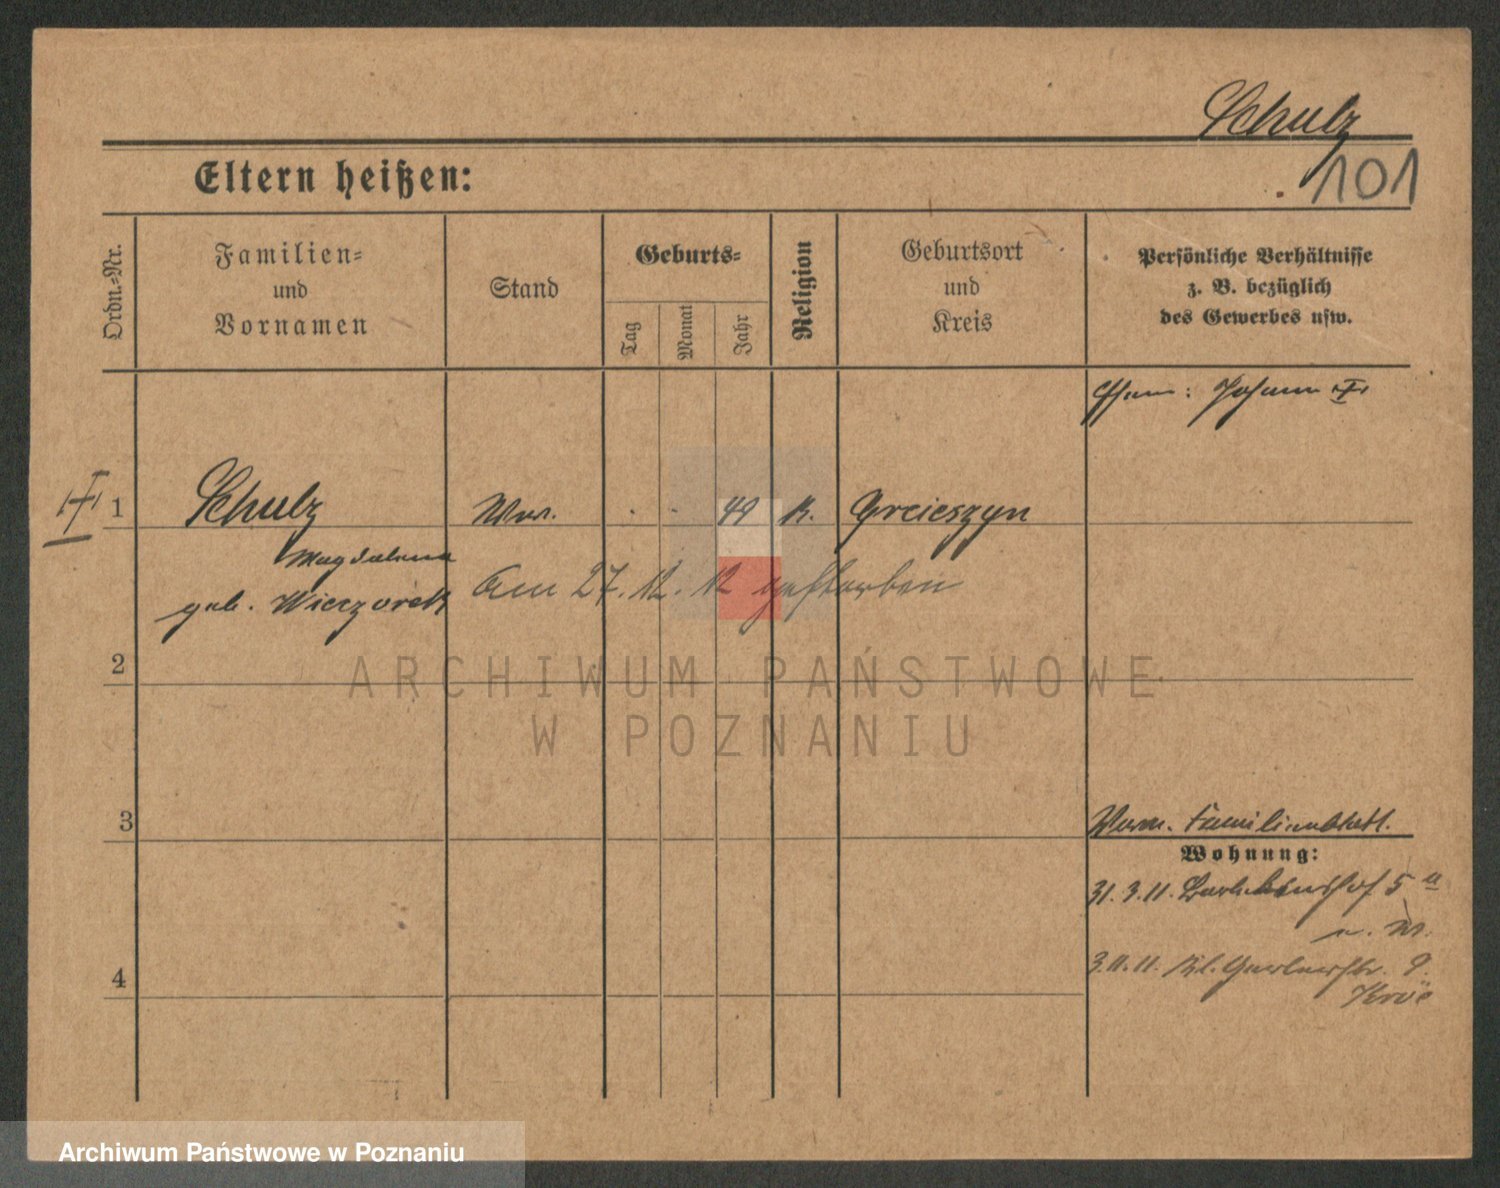 Schulz
101
Eltern heißen:
Ordn.-Nr.
Familien-
und
Vornamen
Stand
Geburts-
Tag
Monat
Jahr
Religion
Geburtsort
und
Kreis
Persönliche Verhältnisse
z. B. bezüglich
des Gewerbes usw.
Johann
1
Schulz
Ww.
49
K.
Magdalena
geb. Wieczorek
Am 27.12.12 gestorben
2
ARCHIWUM PAŃSTWOWE
W POZNANIU
3
Familienblatt.
Wohnung:
31.3.11. 5
4
3.11.11. Kl. Gerberstr. 9.
Archiwum Państwowe w Poznaniu